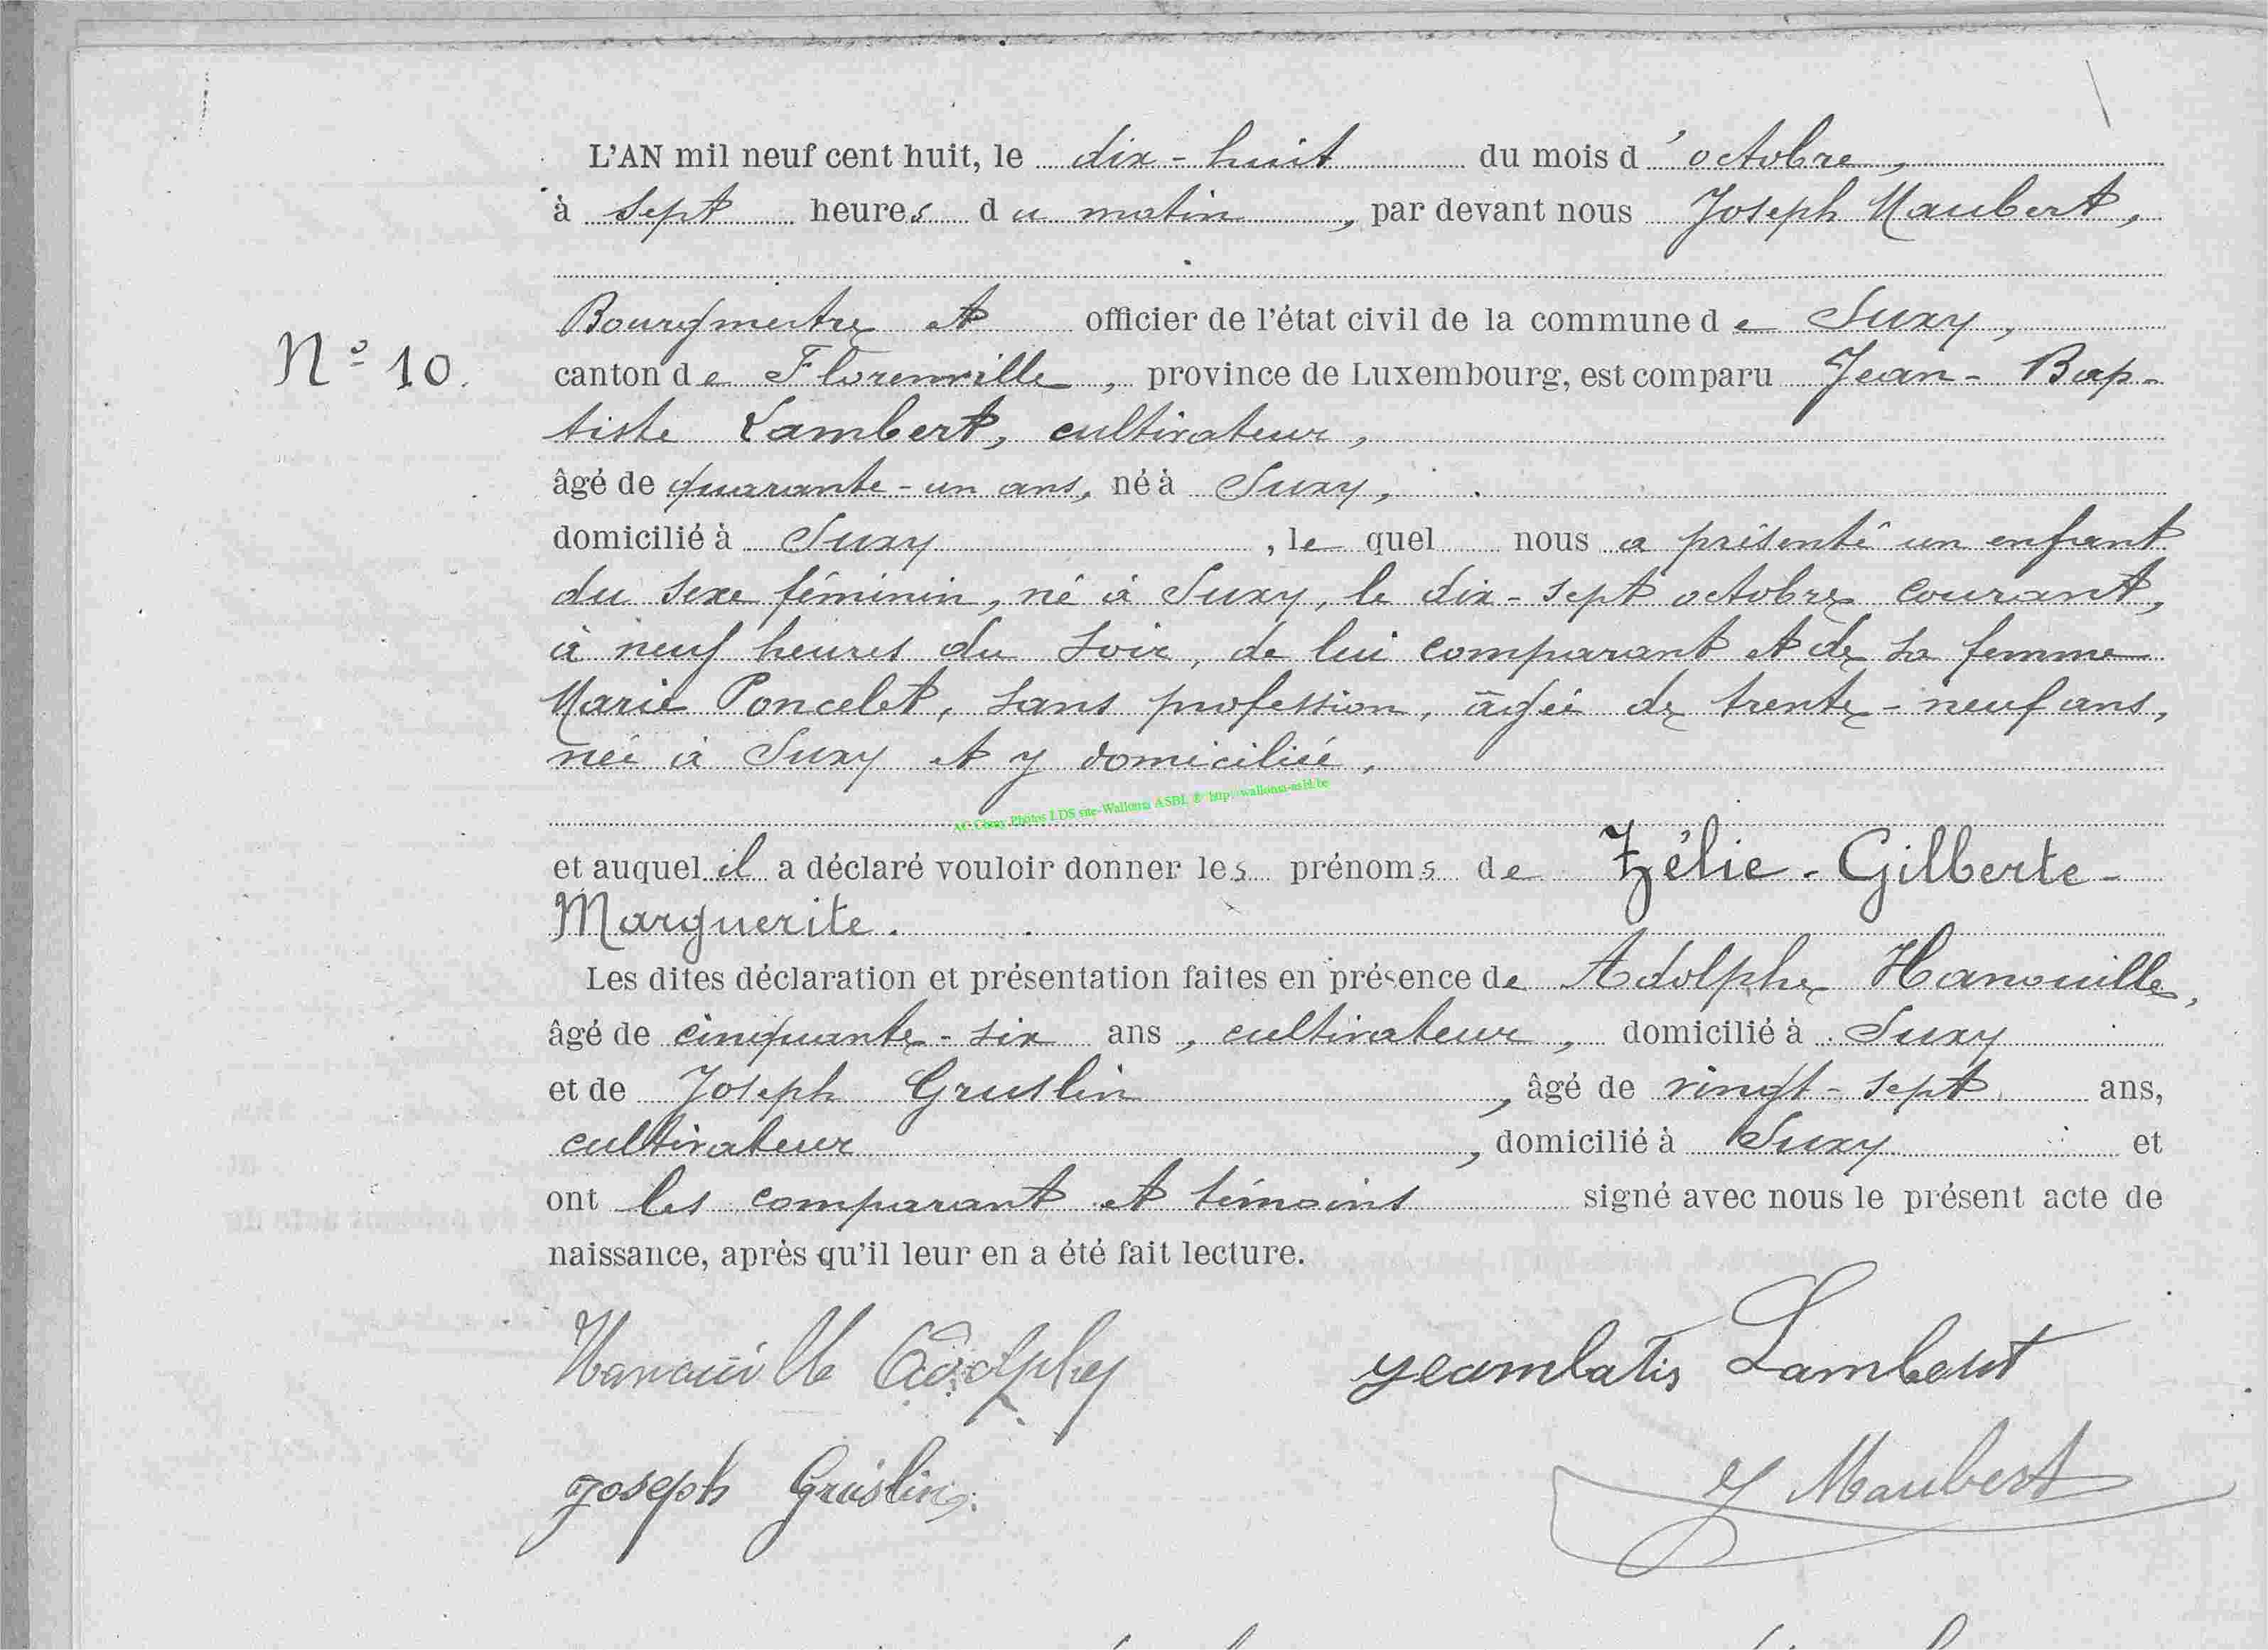 L'AN mil neuf cent huit, le dix-huit du mois d'octobre,
à sept heures du matin, par devant nous Joseph Maubert,
Bourgmestre et officier de l'état civil de la commune de Suxy,
N° 10.
canton de Florenville, province de Luxembourg, est comparu Jean-Bap-
tiste Lambert, cultivateur,
âgé de quarante-un ans, né à Suxy,
domicilié à Suxy, le quel nous a présenté un enfant
du sexe féminin, né à Suxy, le dix-sept octobre courant,
à neuf heures du soir, de lui comparant et de sa femme
Marie Poncelet, sans profession, âgée de trente-neuf ans,
née à Suxy et y domiciliée,
AC Chiny Photos LDS site-Wallonia ASBL © http://wallonia-asbl.be
et auquel il a déclaré vouloir donner les prénoms de Zélie-Gilberte-
Marguerite.
Les dites déclaration et présentation faites en présence de Adolphe Hanouille,
âgé de cinquante-six ans, cultivateur, domicilié à Suxy
et de Joseph Gruslin, âgé de vingt-sept ans,
cultivateur, domicilié à Suxy et
ont les comparant et témoins signé avec nous le présent acte de
naissance, après qu'il leur en a été fait lecture.
Hanouille Adolphe jeambatis Lambert
joseph Gruslin J Maubert